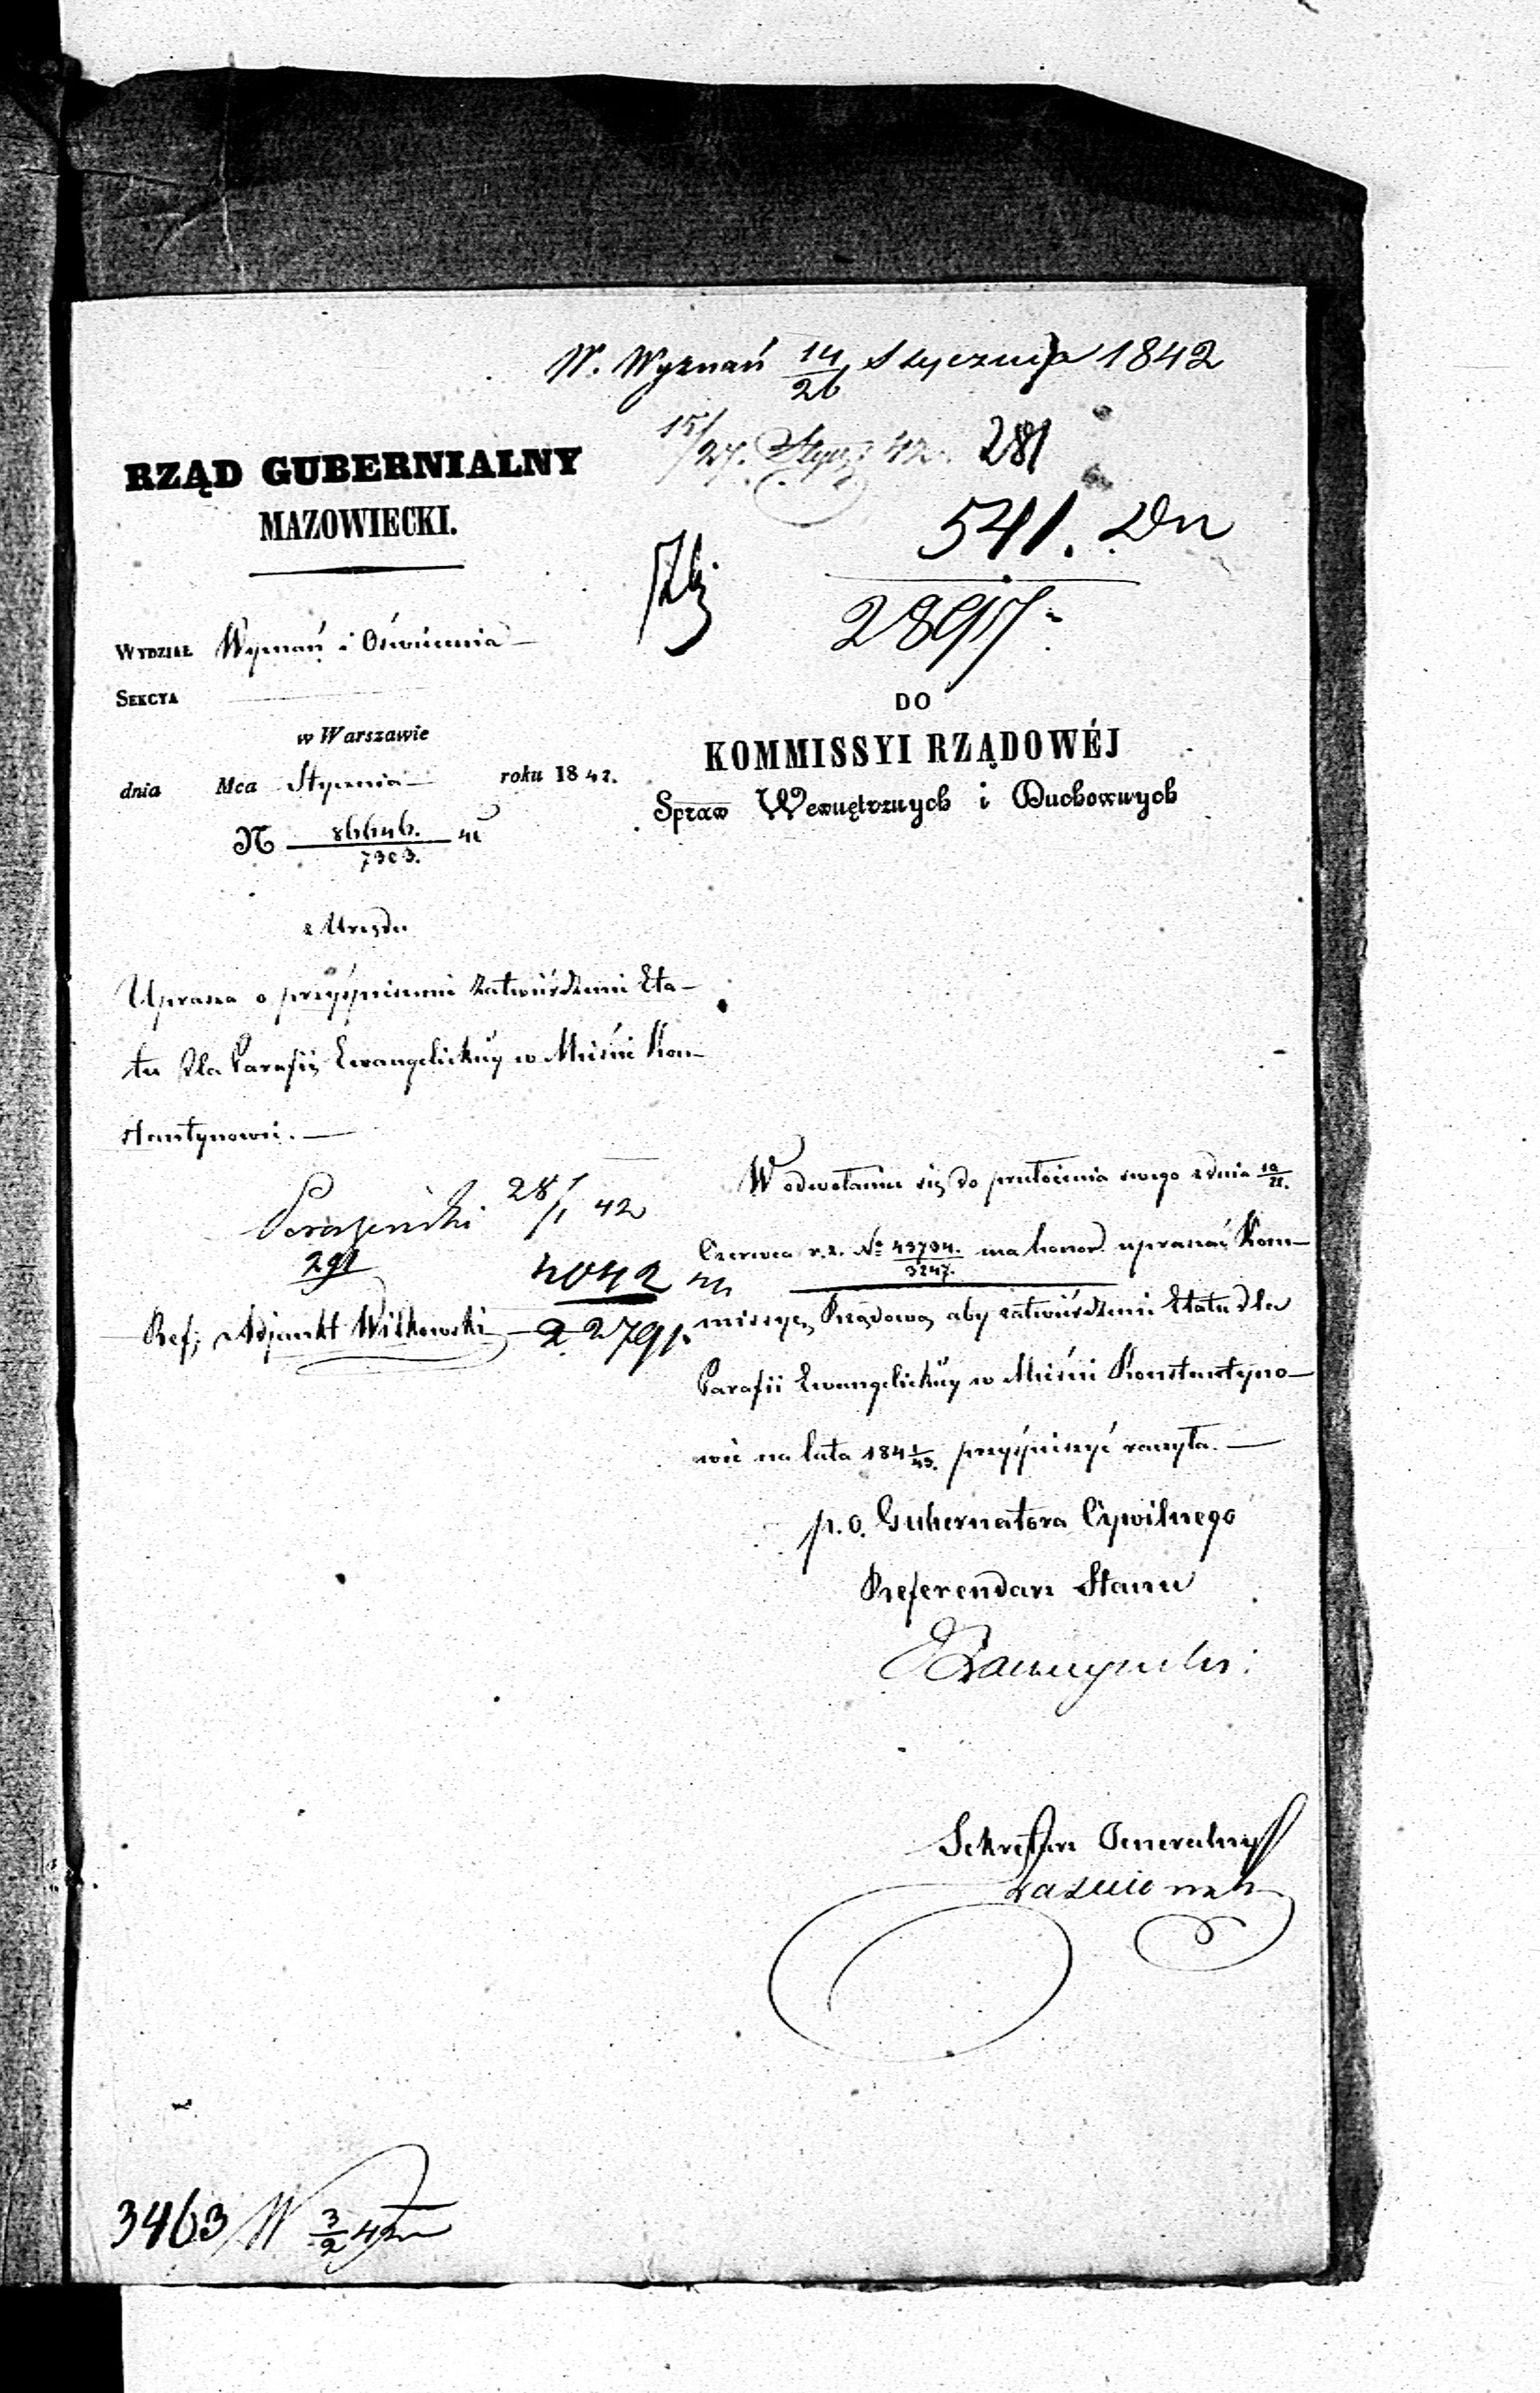 W. Wyznań 14/26 Stycznia 1842
15/27. Stycz: 42. 281
541. Dn
2897
RZĄD GUBERNIALNY
MAZOWIECKI.
WYDZIAŁ Wyznań i Oświecenia
SEKCYA
w Warszawie
dnia Mca Stycznia roku 1842.
N 86646./7303. 41
z Urzędu
Uprasza o przyśpieszenie zatwierdzenia Eta-
tu dla Parafii Ewangelickiey w Mieście Kon-
stantynowie.
28/1 42
291
4042
Ref; Adjunkt Witkowski 2279
DO
KOMMISSYI RZĄDOWÉJ
Spraw Wewnętrznych i Duchownych
W odwołaniu się do przełożenia swego z dnia 10/22.
Czerwca r.z. No 43734./3247. ma honor upraszać Kom-
missyą Rządową aby zatwierdzenie Etatu dla
Parafii Ewangelickiey w Mieście Konstantyno-
wie na lata 1841/43. przyśpieszyć raczyła.
p.o. Gubernatora Cywilnego
Referendarz Stanu
Sekretarz Generalny
3463 W 3/2 42